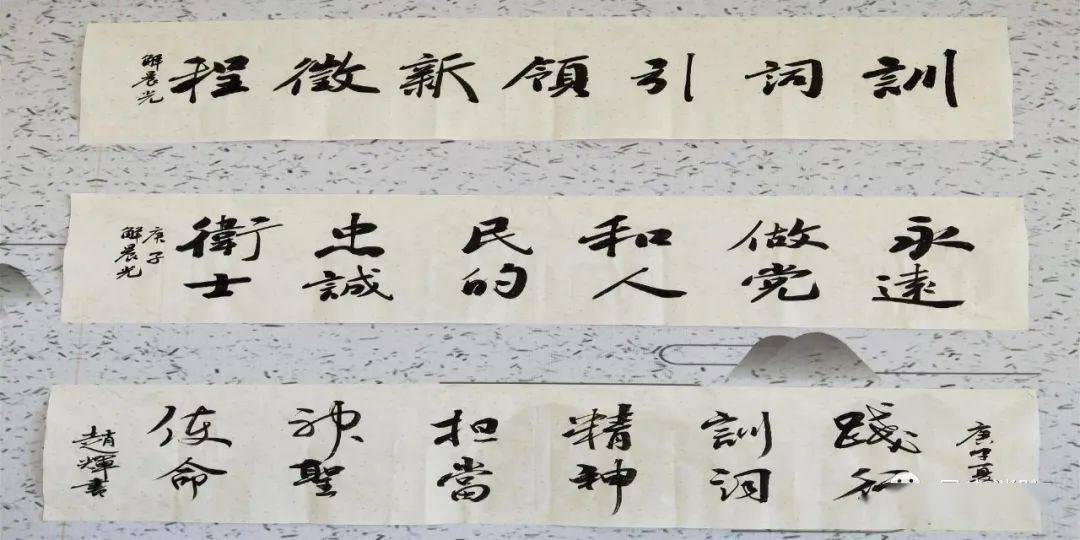 訓詞引領新徵程
解晨光
永遠
做党
和人
民的
忠誠
衛士
庚子
解晨光
庚子夏
踐行
訓詞
精神
担當
神聖
使命
趙輝書